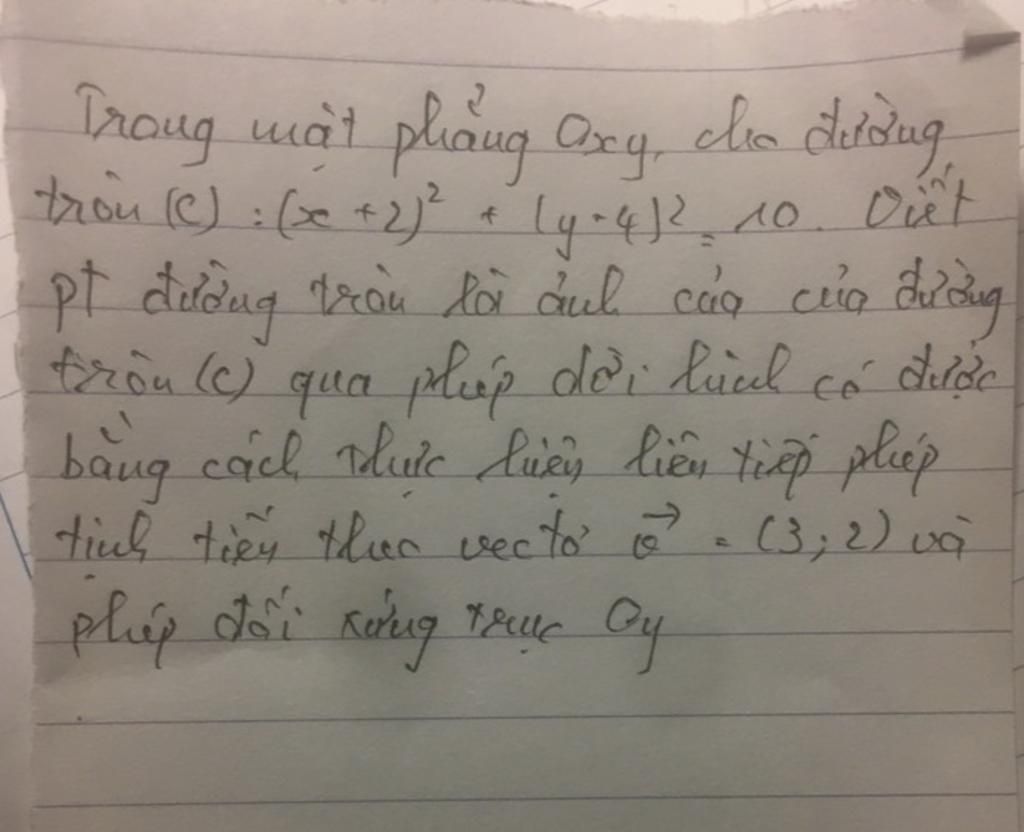 Trong mặt phẳng Oxy, cho đường
tròn (C) : (x + 2)² + (y - 4)² = 10. Viết
pt đường tròn là ảnh của của đường
tròn (C) qua phép dời hình có được
bằng cách thực hiện liên tiếp phép
tịnh tiến theo vectơ v⃗ = (3; 2) và
phép đối xứng trục Oy